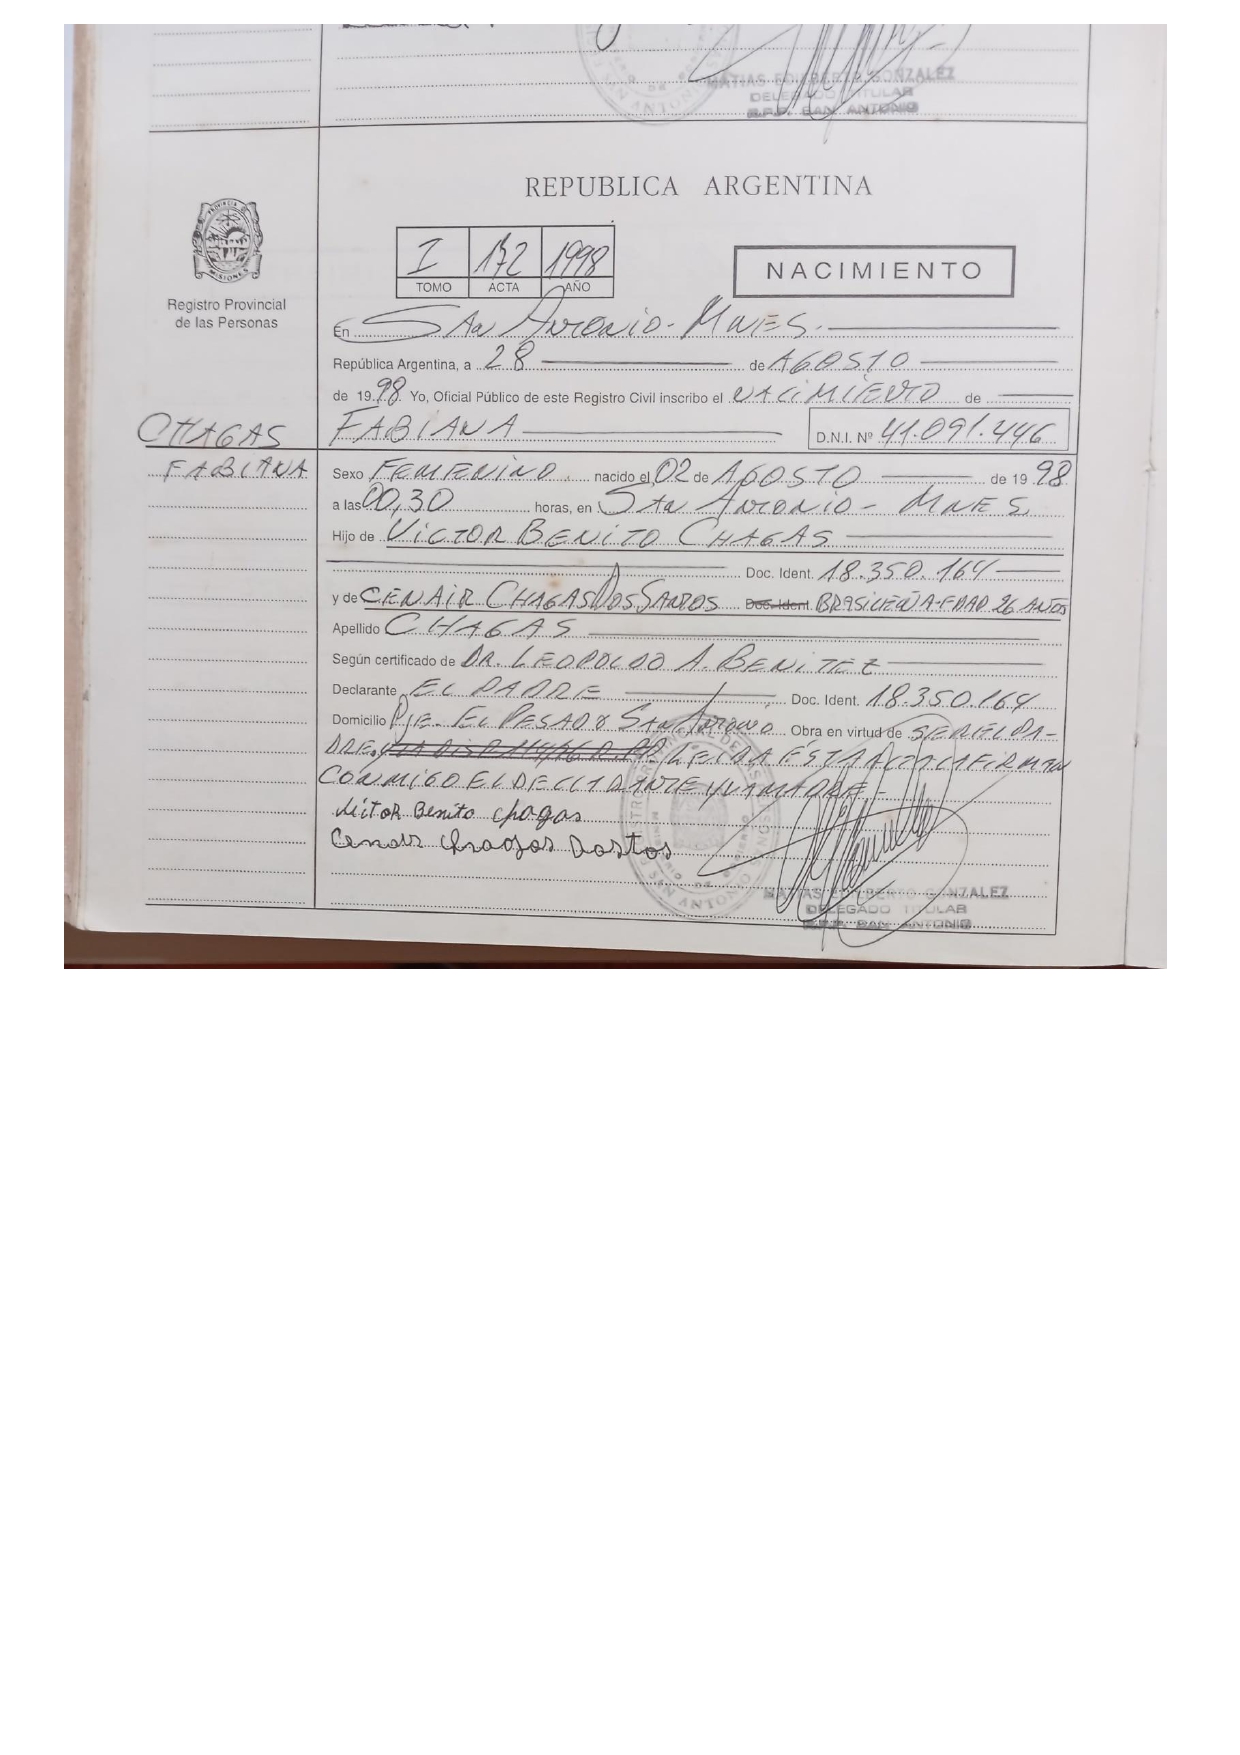 MATIAS EDILBERTO GONZALEZ
DELEGADO TITULAR
R.P.P. SAN ANTONIO
REPUBLICA ARGENTINA
I 172 1998
TOMO ACTA AÑO
NACIMIENTO
PROVINCIA
MISIONES
Registro Provincial
de las Personas
En SAN ANTONIO - MNES.
República Argentina, a 28 de AGOSTO
de 1998 Yo, Oficial Público de este Registro Civil inscribo el NACIMIENTO de
CHAGAS
FABIANA
FABIANA D.N.I. Nº 41.091.446
Sexo FEMENINO nacido el 02 de AGOSTO de 1998
a las 00,30 horas, en SAN ANTONIO - MNES.
Hijo de VICTOR BENITO CHAGAS
Doc. Ident. 18.350.164
y de CENAIR CHAGAS DOS SANTOS Doc. Ident. BRASILEÑA - EDAD 26 AÑOS
Apellido CHAGAS
Según certificado de DR. LEOPOLDO A. BENITEZ
Declarante EL PADRE Doc. Ident. 18.350.164
Domicilio PJE. EL PESADO SAN ANTONIO Obra en virtud de SER EL PA-
DRE, LEIDA ÉSTA ACTA FIRMAN
CONMIGO EL DECLARANTE Y LA MADRE.-
Victor Benito Chagas
Cenair Chagas Dostos
MATIAS EDILBERTO GONZALEZ
DELEGADO TITULAR
R.P.P. SAN ANTONIO